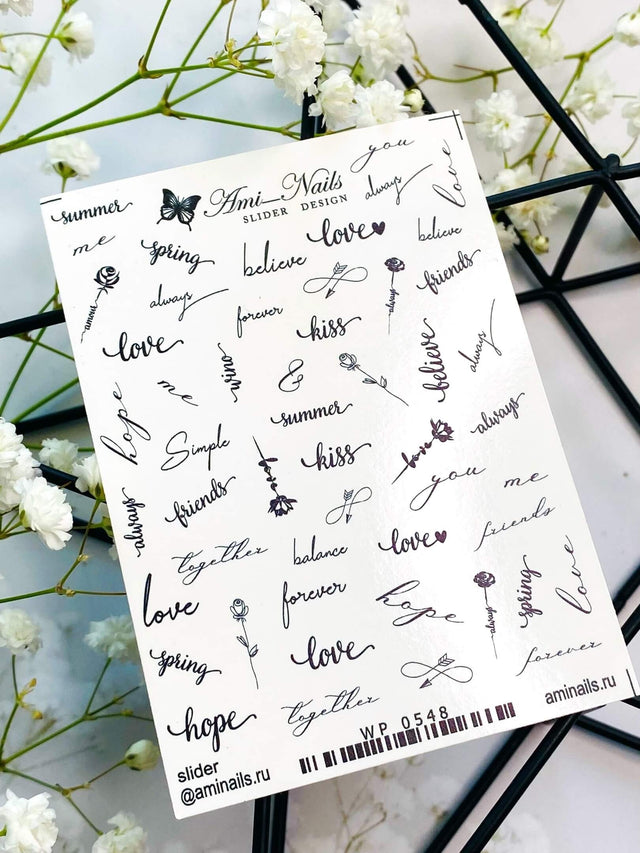 you
summer
Ami_Nails
SLIDER DESIGN
always
love
me
spring
believe
love
believe
amour
always
forever
always
friends
love
kiss
wino
believe
always
me
&
hope
summer
Simple
love
kiss
love
always
always
friends
you
me
together
balance
love
friends
love
forever
hope
always
spring
love
spring
love
forever
hope
together
WP 0548
aminails.ru
slider
@aminails.ru